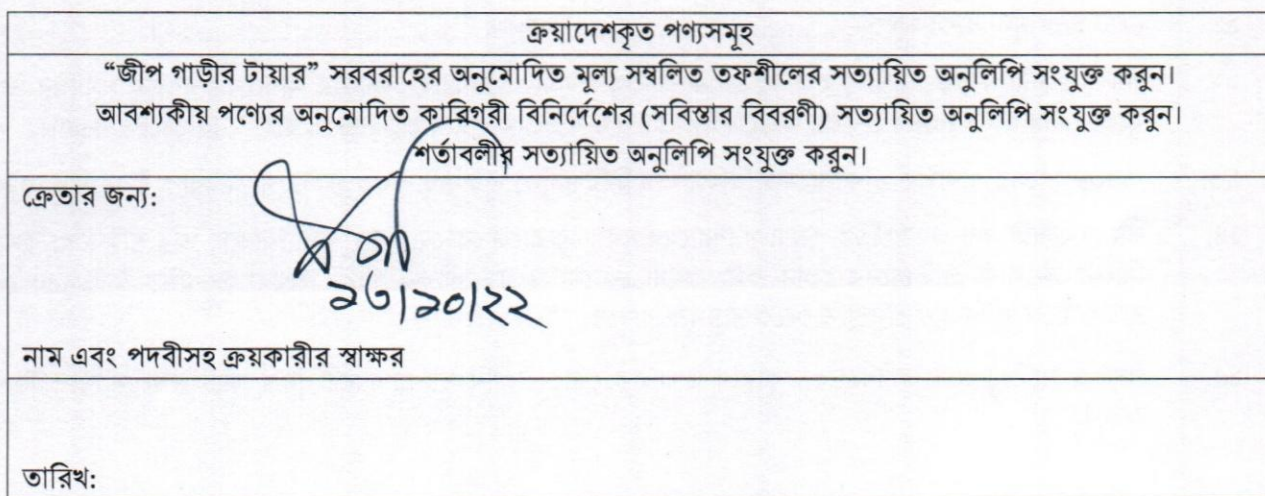 ক্রয়াদেশকৃত পণ্যসমূহ
“জীপ গাড়ীর টায়ার” সরবরাহের অনুমোদিত মূল্য সম্বলিত তফশীলের সত্যায়িত অনুলিপি সংযুক্ত করুন।
আবশ্যকীয় পণ্যের অনুমোদিত কারিগরী বিনির্দেশের (সবিস্তার বিবরণী) সত্যায়িত অনুলিপি সংযুক্ত করুন।
শর্তাবলীর সত্যায়িত অনুলিপি সংযুক্ত করুন।
ক্রেতার জন্য:
২৩|১০|২২
নাম এবং পদবীসহ ক্রয়কারীর স্বাক্ষর
তারিখ: